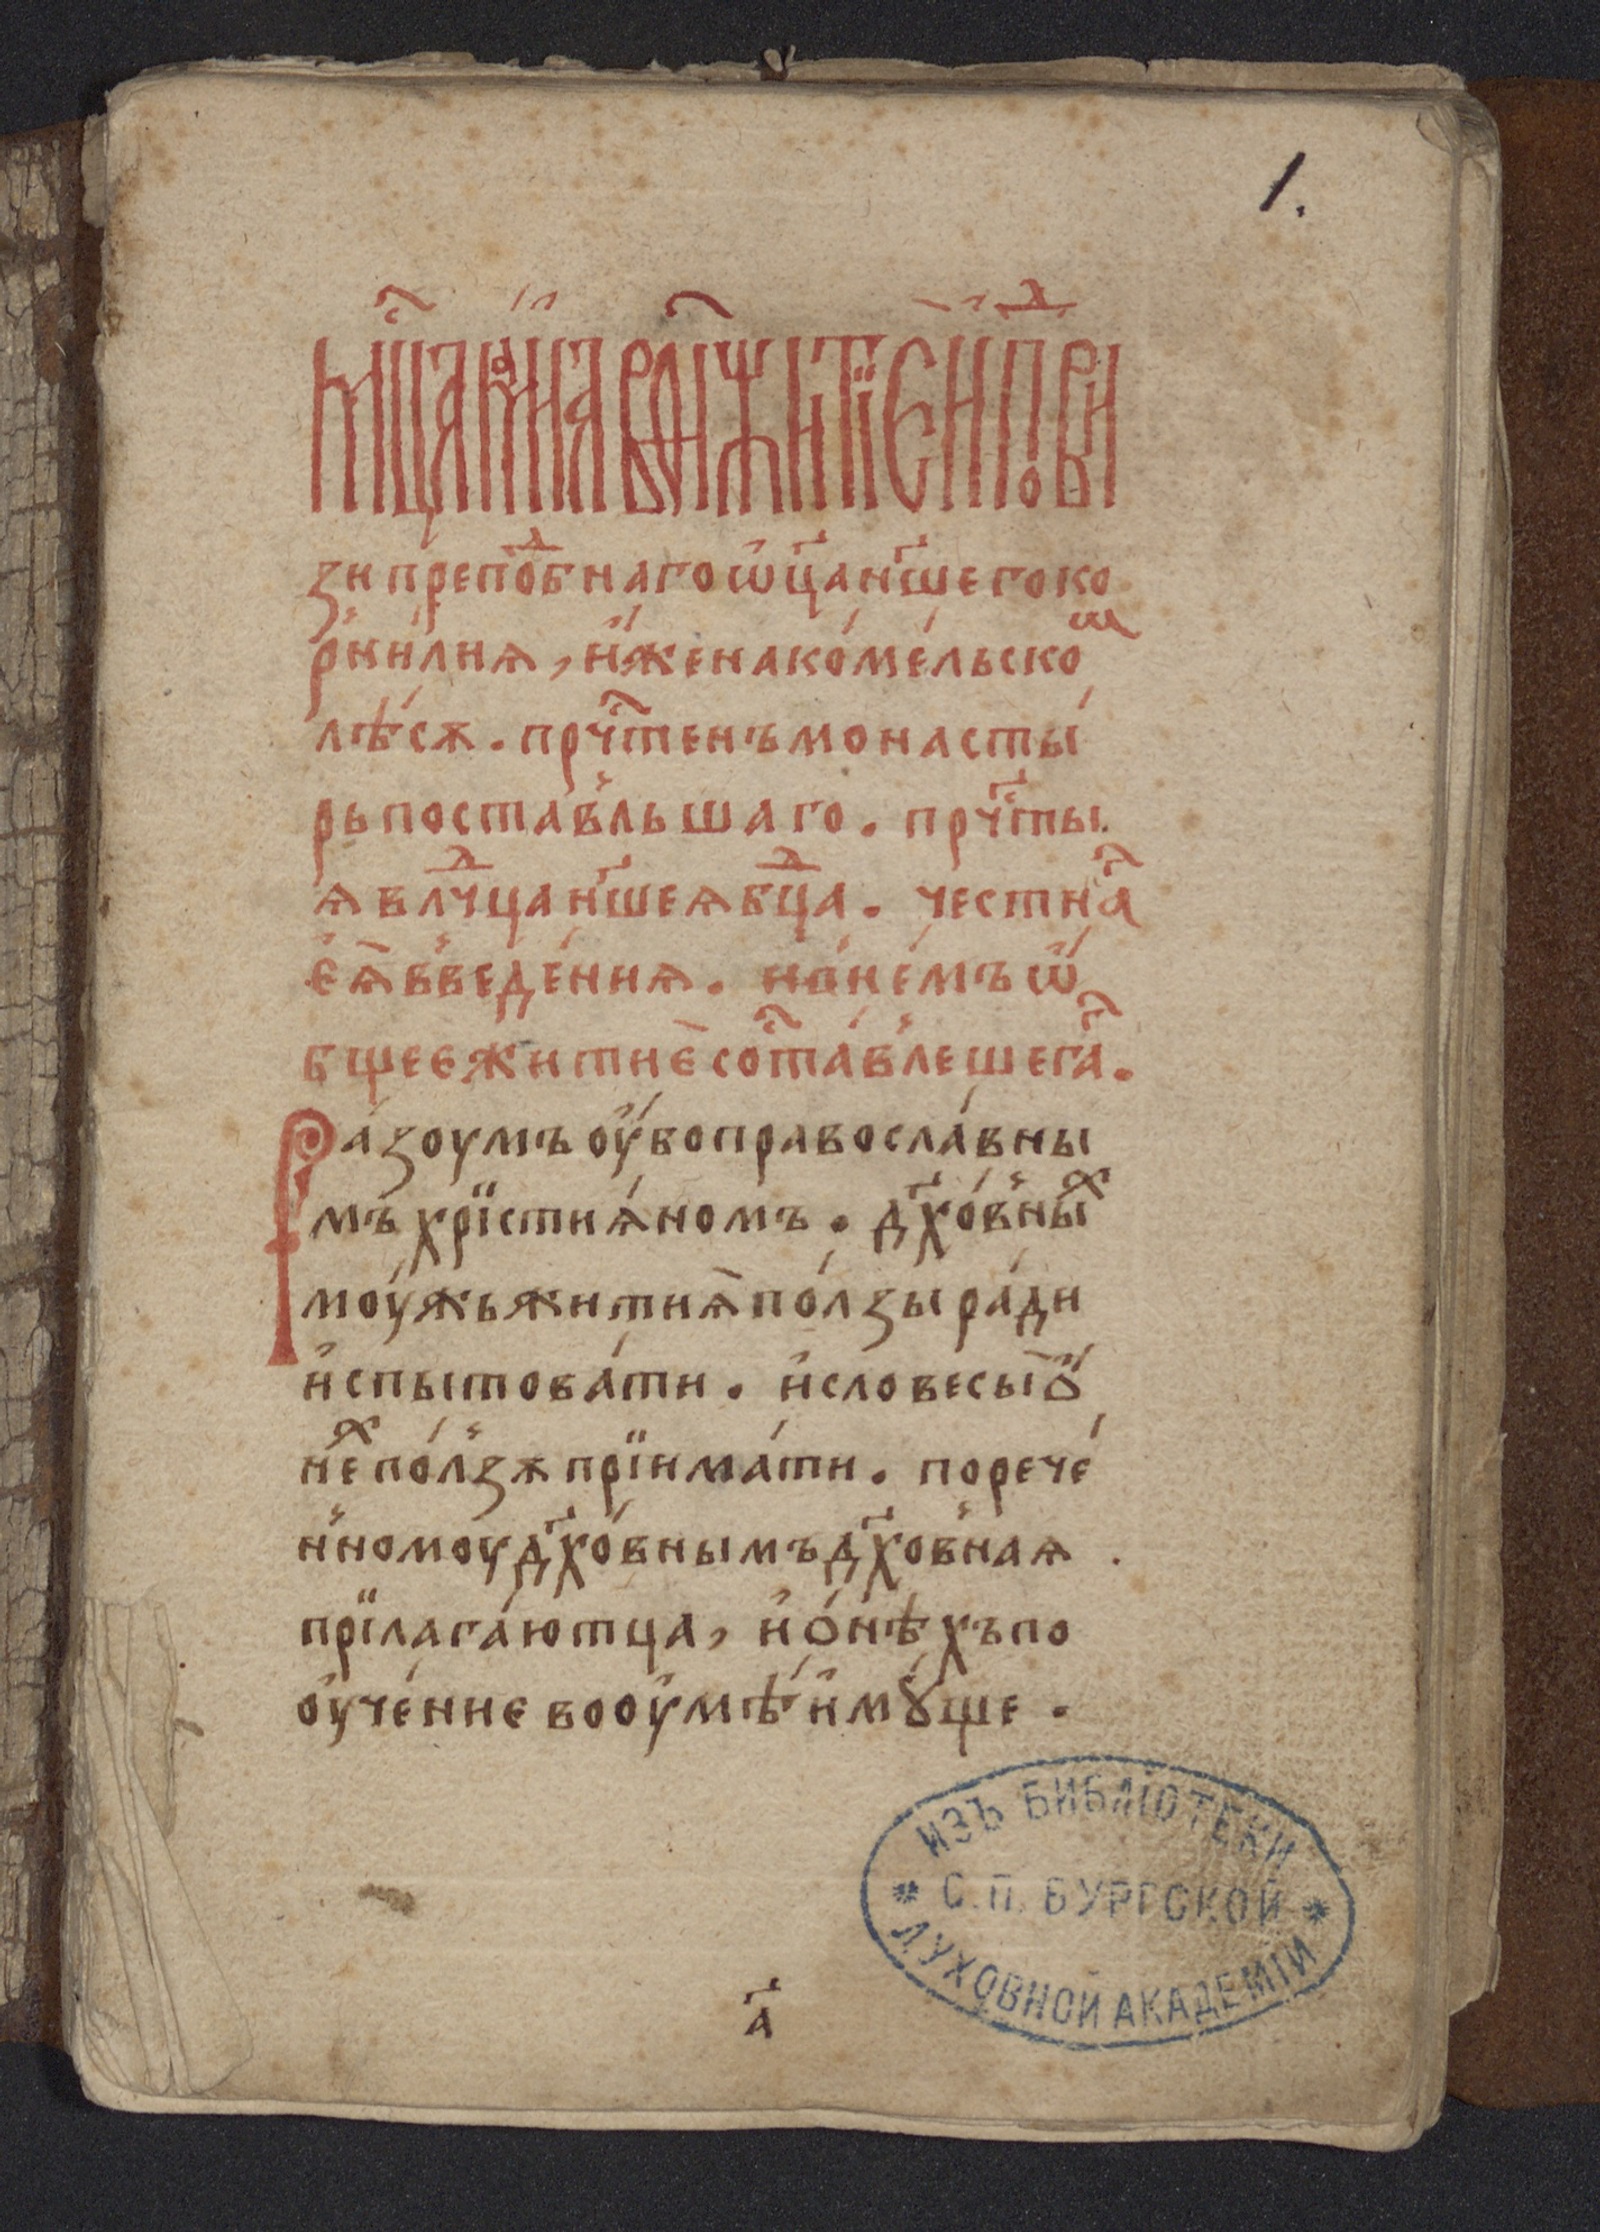 1.
мц҃а маиа въ ѳ҃і житїе и подви
зи преподобнаго ѿц҃а нш҃его ко
рнилиѧ, иже на комельско
лѣсѫ. прч҃стенъ монасты
рь поставльшаго. прч҃сты
ѧ влч҃ца нш҃еѧ бц҃а. честнаг
еѧ введениѧ. и в немъ ѡ
бщее житие соста́влешега.
Разоумъ оубо православны
мъ хрїстиѧномъ. дх҃овных
моужь житиѧ ползы ради
испытовати. и словесы ꙋ
них пользѫ прїимати. порече
нномоу дх҃овнымъ дх҃овнаѧ
прїлагаютца, и о нѣхъ по
оучение во оумѣ имꙋще.
ИЗЪ БИБЛІОТЕКИ
С.П. БУРГСКОЙ
ДУХОВНОЙ АКАДЕМІИ
а҃